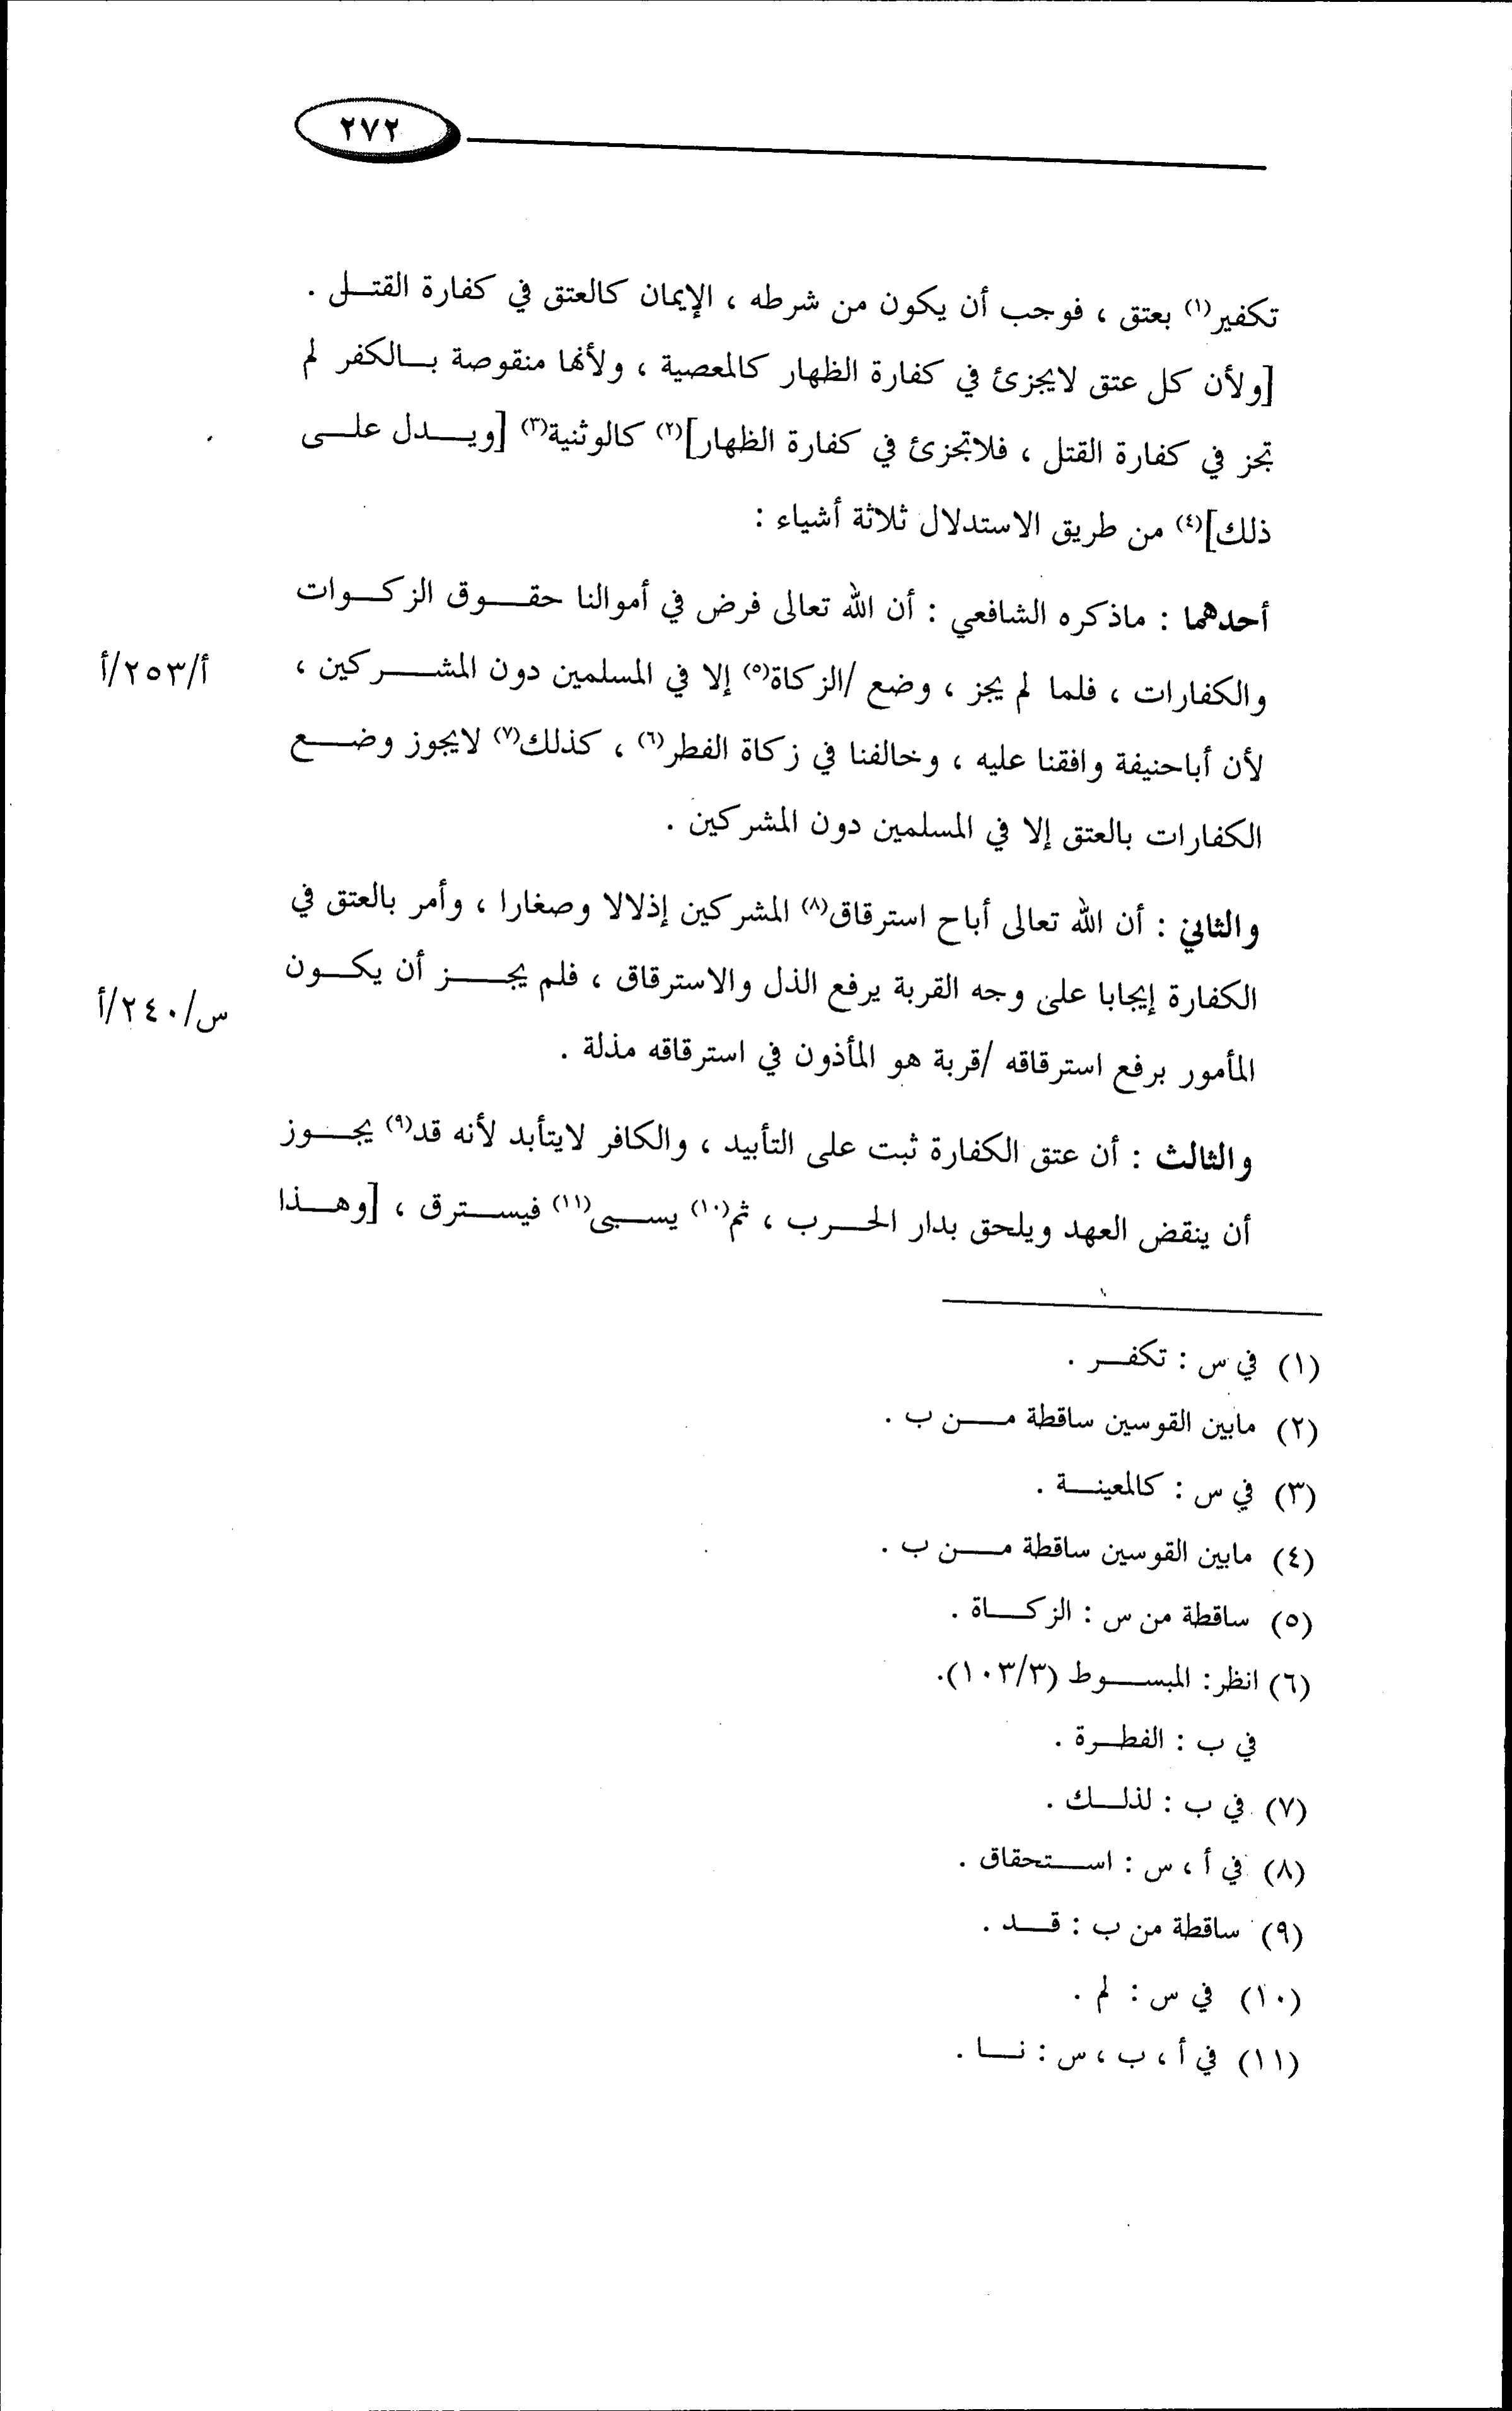 ٢٧٢
تكفير(١) بعتق ، فوجب أن يكون من شرطه ، الإيمان كالعتق في كفارة القتل .
[ولأن كل عتق لايجزئ في كفارة الظهار كالمعصية ، ولأنها منقوصة بالكفر لم
تجز في كفارة القتل ، فلاتجزئ في كفارة الظهار](٢) كالوثنية(٣) [ويدل على
ذلك](٤) من طريق الاستدلال ثلاثة أشياء :
أحدهما : ماذكره الشافعي : أن الله تعالى فرض في أموالنا حقوق الزكوات
والكفارات ، فلما لم يجز ، وضع /الزكاة(٥) إلا في المسلمين دون المشركين ،
أ/٢٥٣/أ
لأن أباحنيفة وافقنا عليه ، وخالفنا في زكاة الفطر(٦) ، كذلك(٧) لايجوز وضع
الكفارات بالعتق إلا في المسلمين دون المشركين .
والثاني : أن الله تعالى أباح استرقاق(٨) المشركين إذلالا وصغارا ، وأمر بالعتق في
الكفارة إيجابا على وجه القربة يرفع الذل والاسترقاق ، فلم يجز أن يكون
س/٢٤٠/أ
المأمور برفع استرقاقه /قربة هو المأذون في استرقاقه مذلة .
والثالث : أن عتق الكفارة ثبت على التأبيد ، والكافر لايتأبد لأنه قد(٩) يجوز
أن ينقض العهد ويلحق بدار الحرب ، ثم(١٠) يسبى(١١) فيسترق ، [وهذا
(١) في س : تكفر .
(٢) مابين القوسين ساقطة من ب .
(٣) في س : كالمعينة .
(٤) مابين القوسين ساقطة من ب .
(٥) ساقطة من س : الزكاة .
(٦) انظر: المبسوط (١٠٣/٣).
في ب : الفطرة .
(٧) في ب : لذلك .
(٨) في أ ، س : استحقاق .
(٩) ساقطة من ب : قد .
(١٠) في س : لم .
(١١) في أ ، ب ، س : نا .